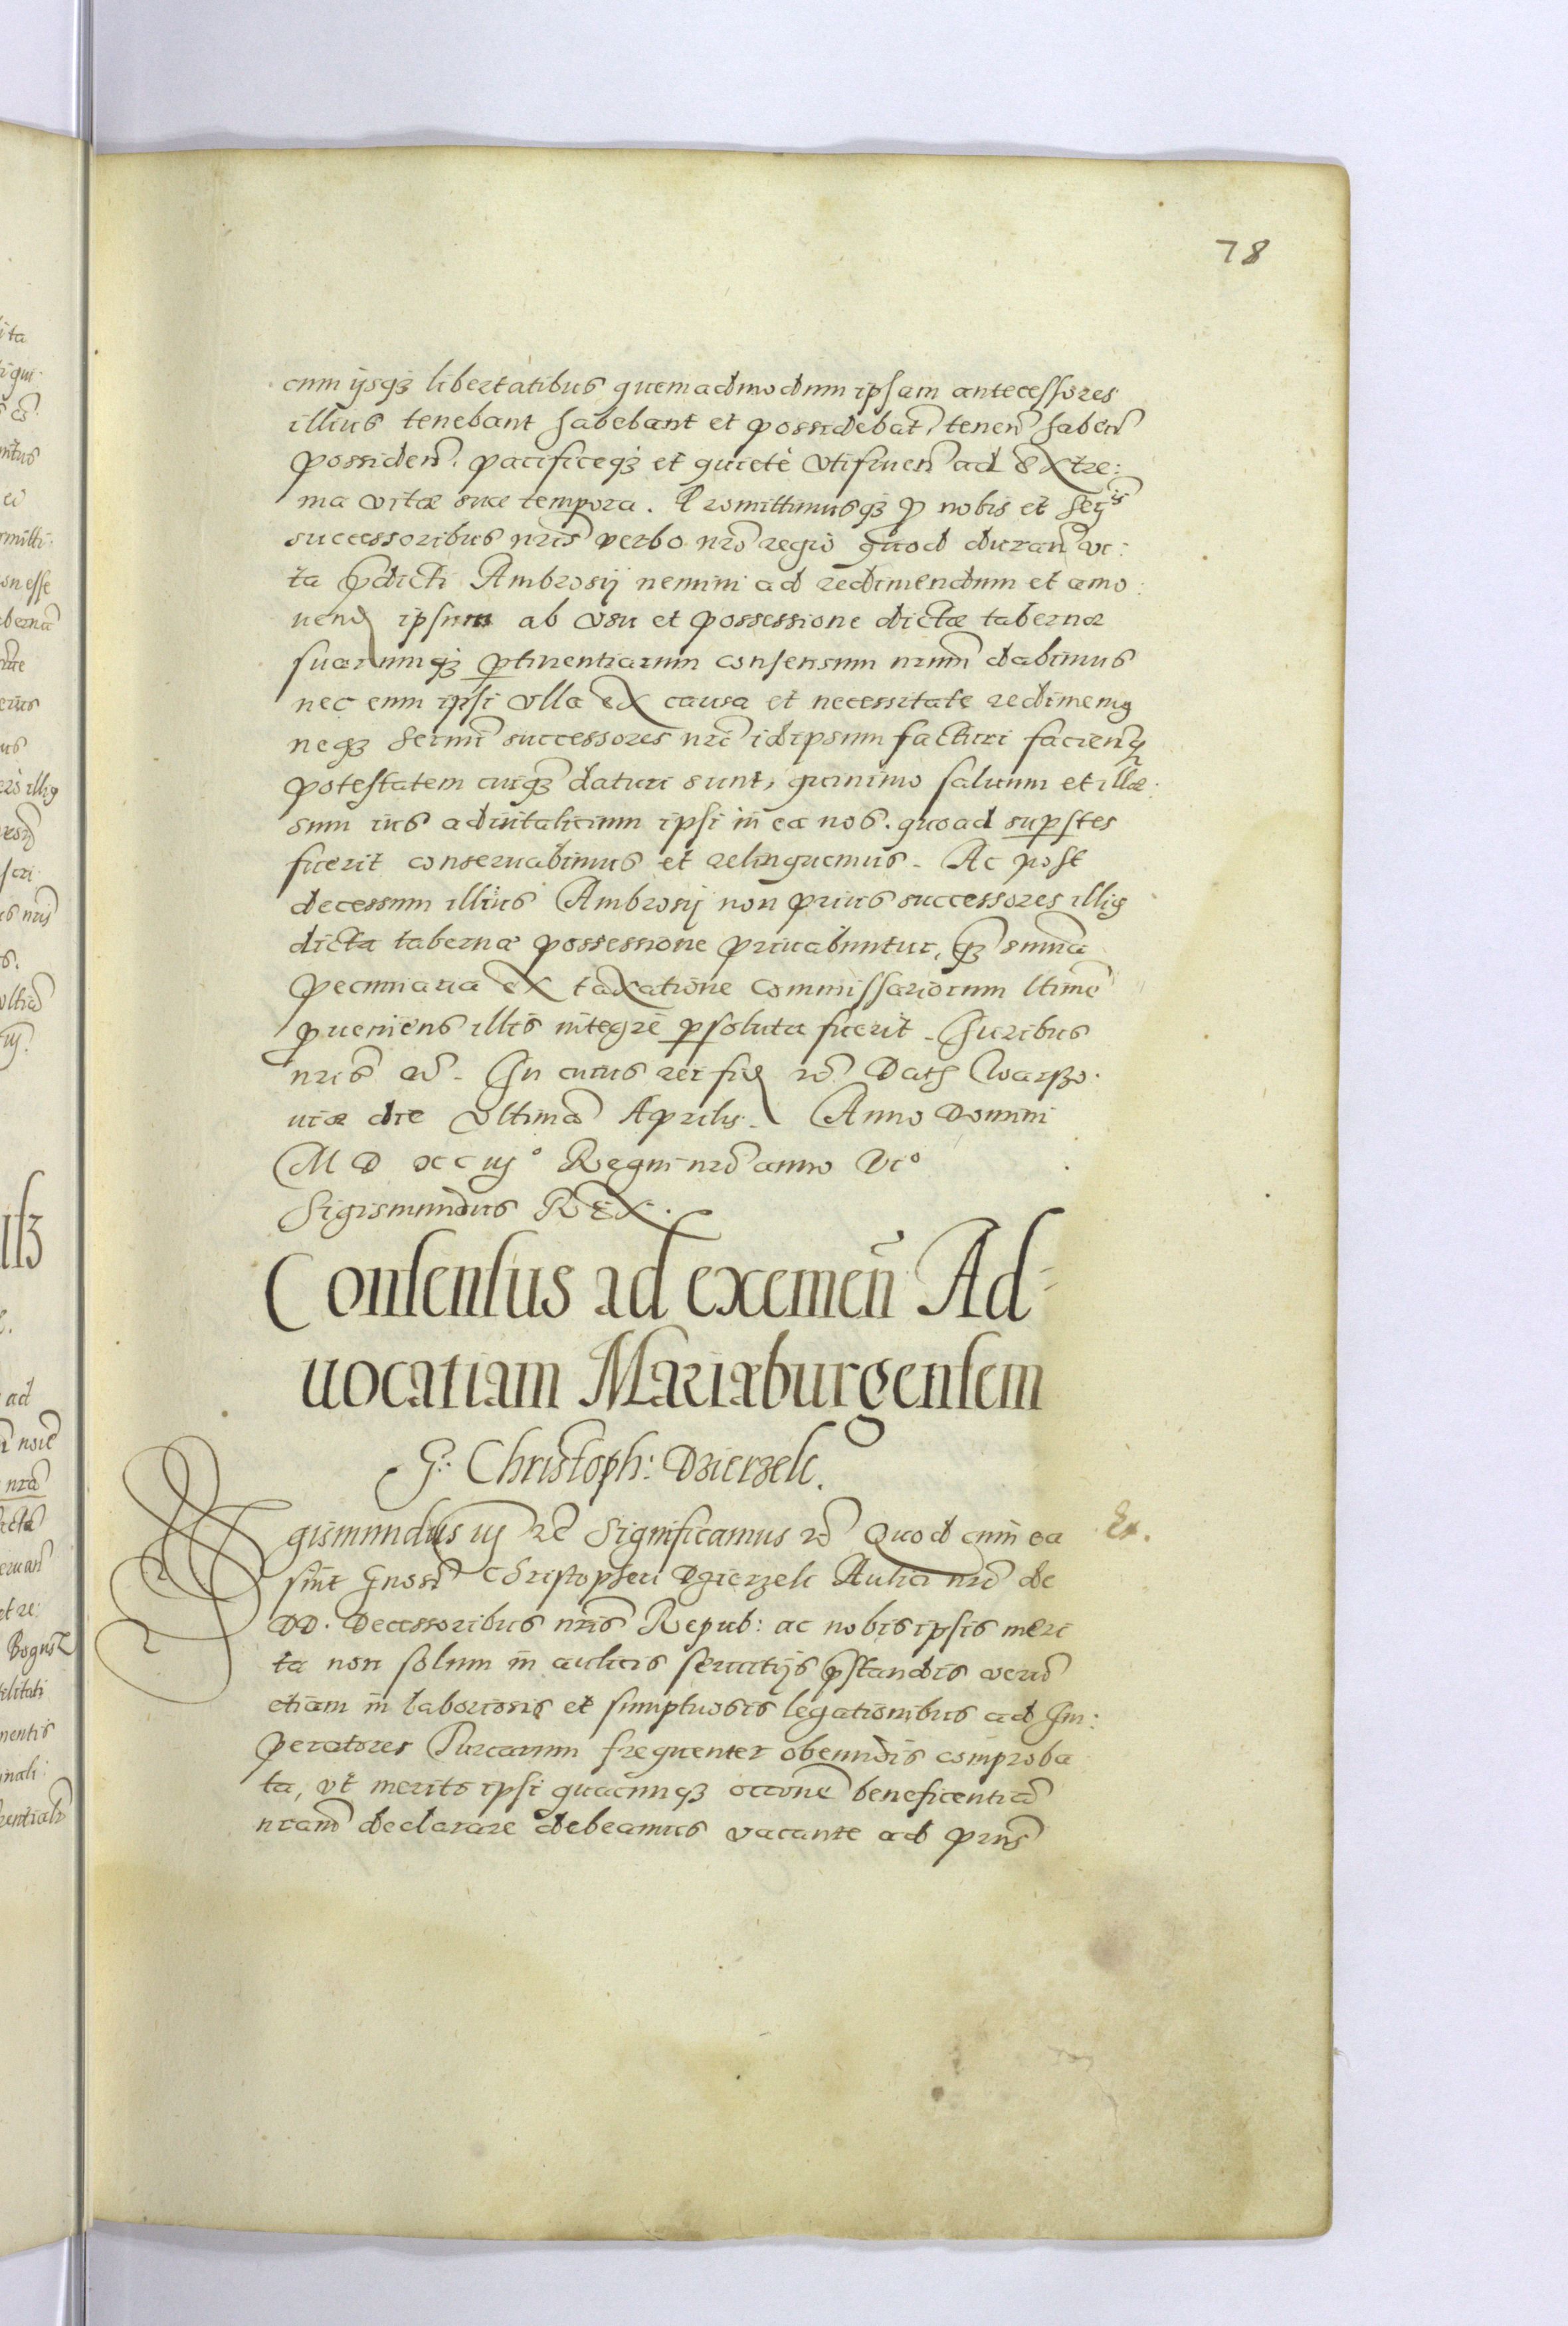 78
cum ijsq3 libertatibus quemadmodum ipsam antecessores
illius tenebant habebant et possidebāt, teneñ habeñ
possideñ. pacificeq3 et quiete vtifrueñ ad extre:
ma vitæ suæ tempora. Promittimusq3 p nobis et Serijs
successoribus nris verbo nro regio quod durañ vi:
ta pdicti Ambrosij nemini ad redimendum et amo:
uend ipsum ab vsu et possessione dictæ tabernæ
suarumq3 ptinentiarum consensum nrum dabimus
nec eum ipsi vlla ex causa et necessitate redimemq
neq3 Sermi successores nri idipsum facturi facienq
potestatem cuiq3 daturi sunt, quinimo saluum et illæ:
sum ius aduitalitium ipsi in ea nos. quoad supstes
fuerit conseruabimus et relinquemus. Ac post
decessum illius Ambrosij non prius successores illiq
dicta tabernæ possessione priuabuntur, q3 summa
pecuniaria ex taxatione commissariorum ltime
pueniens illis integre psoluta fuerit. Juribus
nris etc. In cuius rei fid etc Dat Warszo:
uiæ die vltima Aprilis. Anno Domini
M D XC iij° Regni nro anno Vi°
Sigismundus REX.
Consensus ad exemeñ Ad-
uocatiam Mariæburgensem
G: Christoph: Dzierzek.
Sigismundus iij etc Significamus etc Quod cum ea
Ex.
sint Gnosi Christopheri Dzierzek Aulici nri de
DD. Decessoribus nris Repub: ac nobis ipsis meri
ta non solum in aulicis seruitijs pstandis verum
etiam in laboriosis et sumptuosis legationibus ad Im:
peratores Turcarum frequenter obeundis comproba
ta, vt merito ipsi quacunq3 occone beneficentia
nram declarare debeamus vacante ad pñs